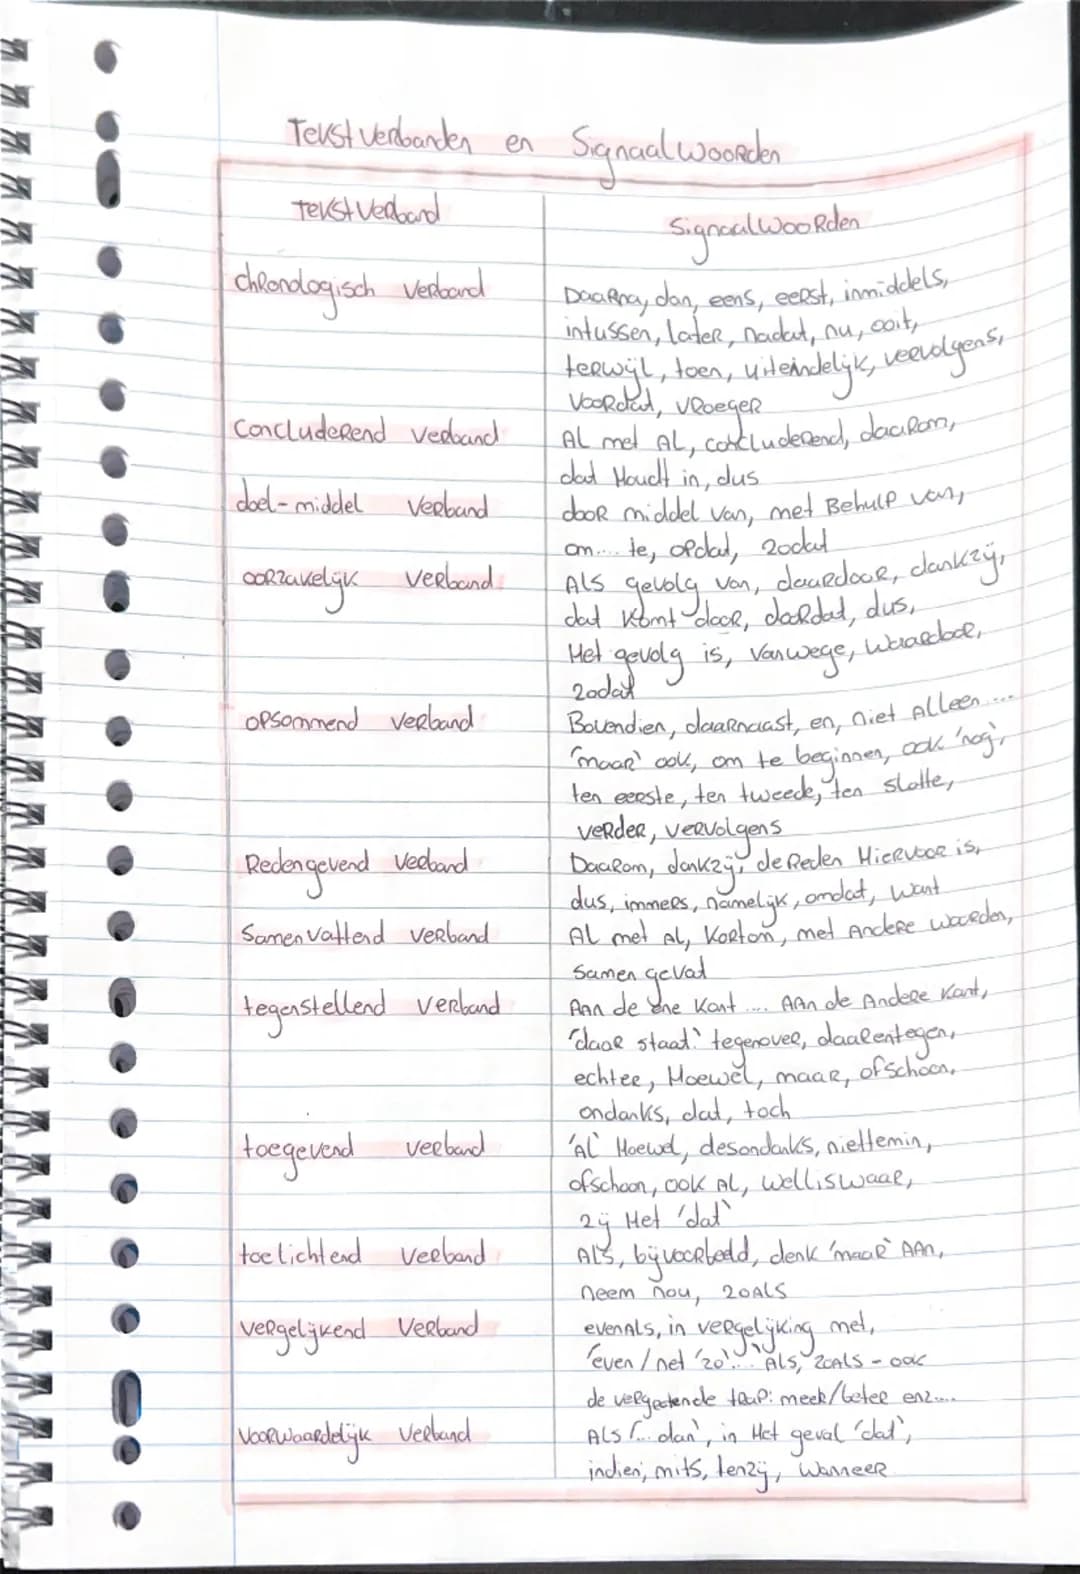 Tekstverbanden en Signaalwoorden
Tekstverband
Signaalwoorden
chronologisch verband
Daarna, dan, eens, eerst, inmiddels,
intussen, later, nadat, nu, ooit,
terwijl, toen, uiteindelijk, vervolgens,
Voordat, vroeger
Concluderend verband
Al met Al, concluderend, daarom,
dat Houdt in, dus
doel-middel verband
door middel van, met Behulp van,
om.... te, opdat, zodat
oorzakelijk verband
Als gevolg van, daardoor, dankzij,
dat komt door, doordat, dus,
Het gevolg is, vanwege, waardoor,
zodat
opsommend verband
Bovendien, daarnaast, en, niet Alleen ....
'maar' ook, om te beginnen, ook 'nog',
ten eerste, ten tweede, ten slotte,
verder, vervolgens
Redengevend verband
Daarom, dankzij, de Reden Hiervoor is,
dus, immers, namelijk, omdat, want
Samenvattend verband
Al met Al, Kortom, met Andere woorden,
samen gevat
tegenstellend verband
Aan de ene Kant .... Aan de Andere Kant,
'daar staat' tegenover, daarentegen,
echter, Hoewel, maar, ofschoon,
ondanks, dat, toch
toegevend verband
'Al' Hoewel, desondanks, niettemin,
ofschoon, ook Al, welliswaar,
zij Het 'dat'
toelichtend verband
Als, bijvoorbeeld, denk 'maar' Aan,
neem nou, zoAls
vergelijkend verband
evenAls, in vergelijking met,
'even/net 'zo'... 'Als, zoAls - ook
de vergrotende trap: meer/beter enz....
Voorwaardelijk verband
Als '... dan', in Het geval 'dat',
indien, mits, tenzij, wanneer